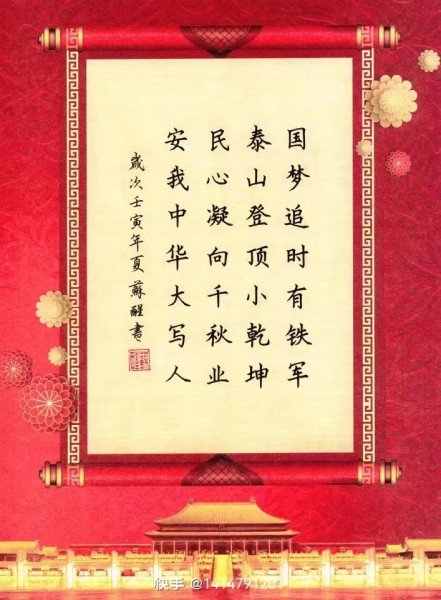 国梦追时有铁军
泰山登顶小乾坤
民心凝向千秋业
安我中华大写人
歲次壬寅年夏蘇醒書
快手 @141479120